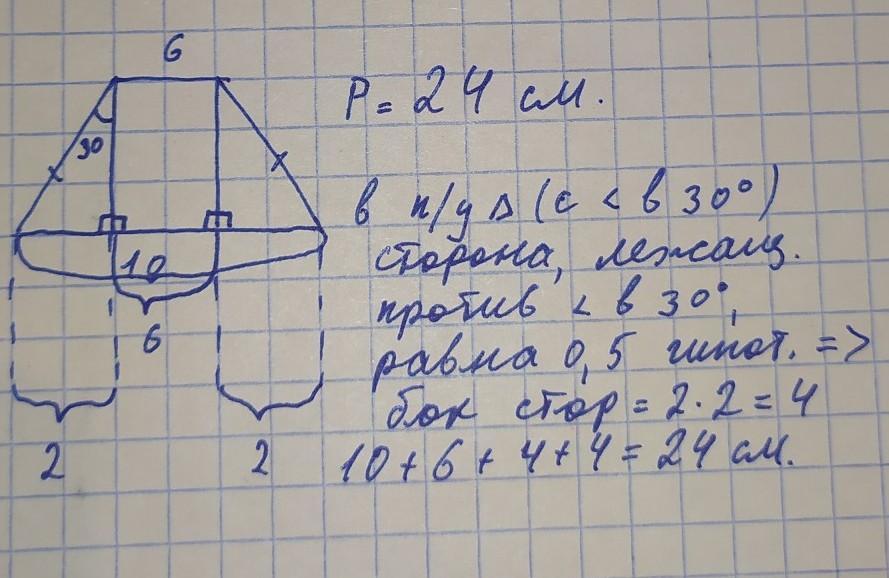 6
P = 24 см.
30
в п/у Δ (с < в 30°)
сторона, лежащ.
10
против < в 30°,
6
равна 0,5 гипот. =>
бок стор = 2·2 = 4
2
2
10 + 6 + 4 + 4 = 24 см.